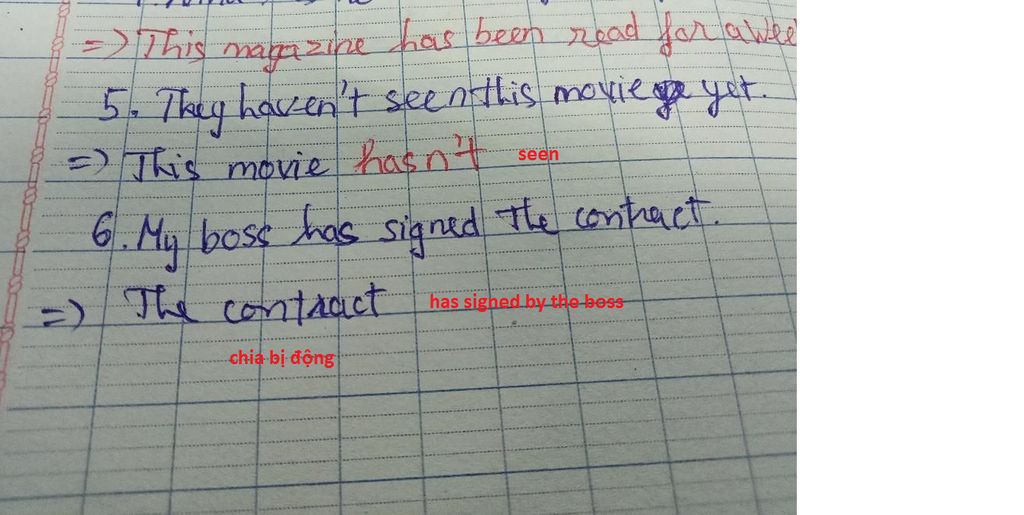 => This magazine has been read for a wee
5. They haven't seen this movie yet.
=> This movie hasn't seen
6. My boss has signed the contract.
=> The contract has signed by the boss
chia bị động